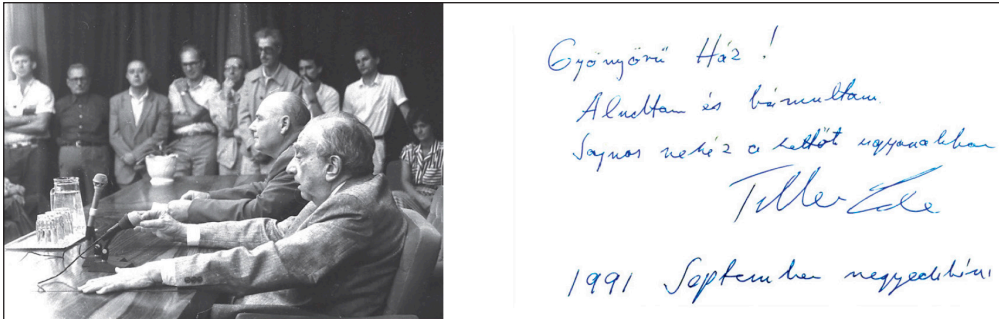 Gyönyörű Ház!
Aludtam és bámultam.
Sajnos nehéz a kettőt ugyanakkor
Teller Ede
1991 September negyedikén